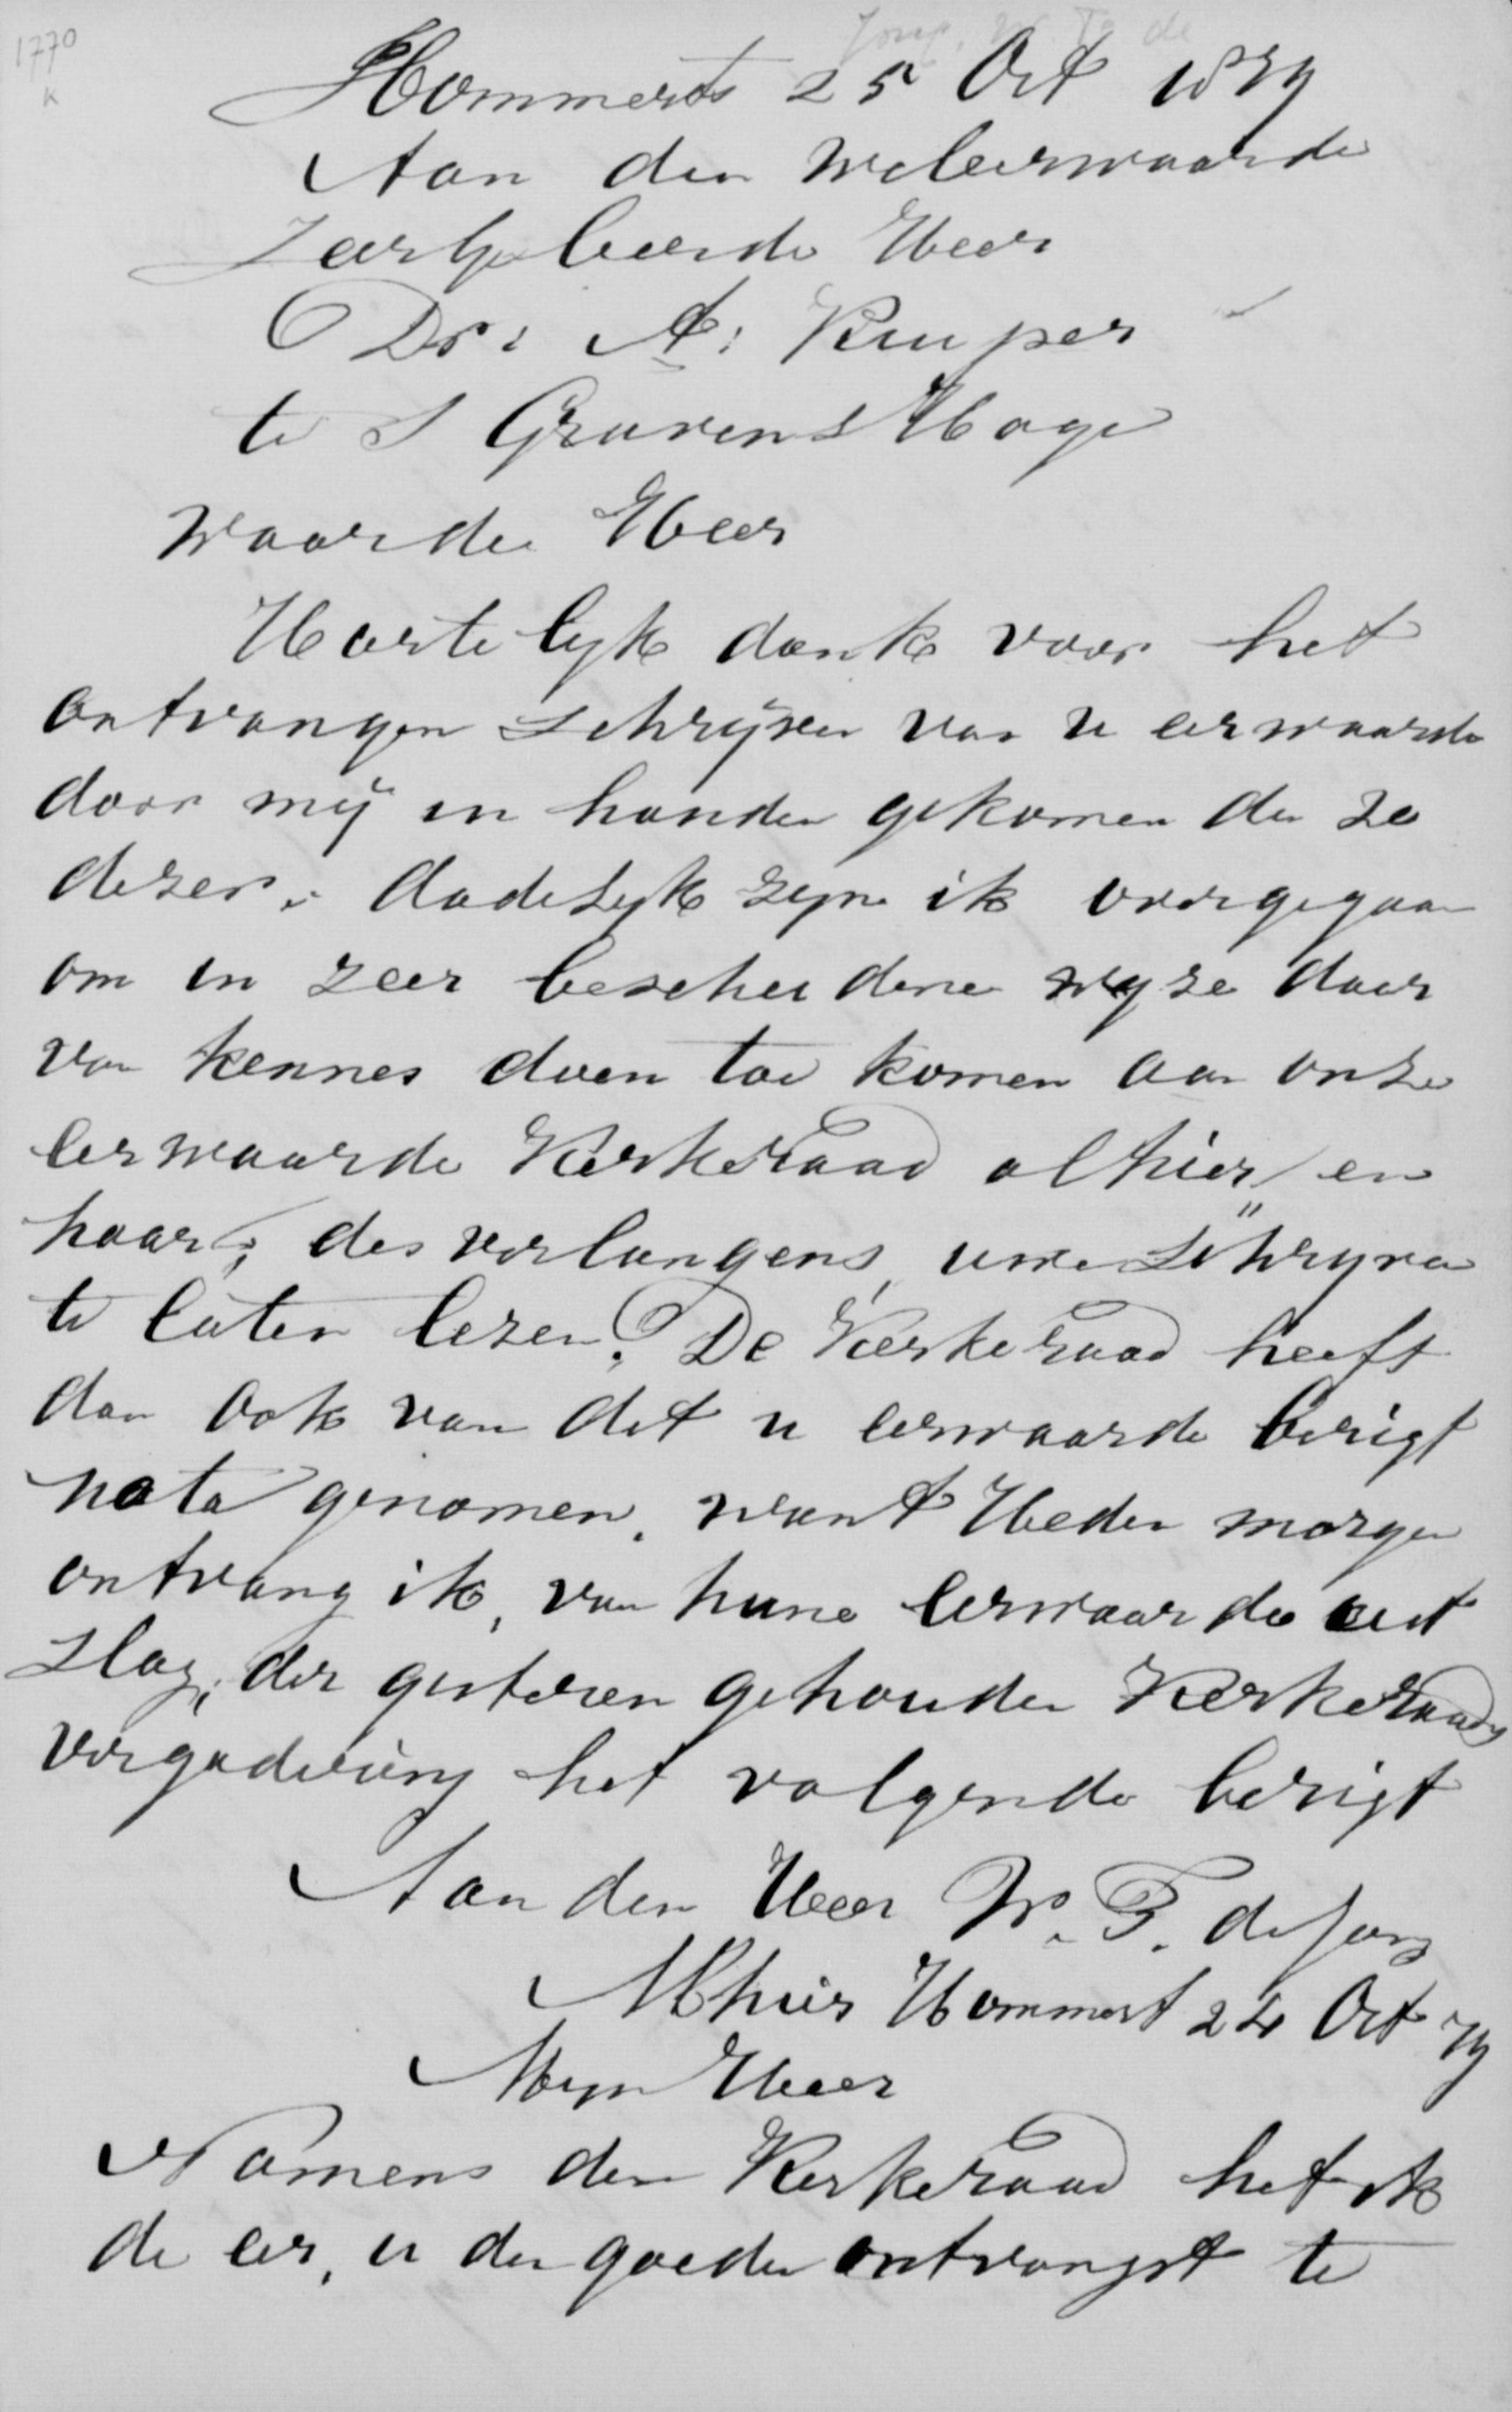 1770
K
Jong, W. Tj. de
Hommerts 25 Oct 1879
Aan den WelEerwaarde
Zeer geleerde Heer
Dr: A: Kuyper
te S Gravens Hage
Waarde Heer
Hartelyk dank voor het
ontvangen schrijven van u eerwaarde
door mij in handen gekomen den 20
dezer. dadelyk zyn ik overgegaan
om in zeer bescheidene wyze daar
van kennes doen toe komen aan onze
eerwaarde Kerkeraad alhier, en
haar, des verlangens, uwe schryven
te laten lezen. De Kerkeraad heeft
dan ook van dit u eerwaarde berigt
nota genomen. want Heden morgen
ontvang ik, van hune eerwaarde uit
slag, der gisteren gehouden Kerkeraads
vergadering het volgende berigt
Aan den Heer W. T. de Jong
Alhier Hommert 24 Oct 79
Myn Heer
Namens den Kerkeraad heb ik
de eer, u den goeden ontvangst te